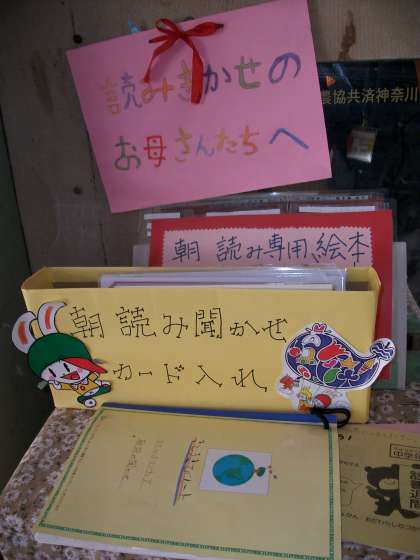 読みきかせの
お母さんたちへ
農協共済神奈川
朝 読み専用絵本
朝 読み聞かせ
カード入れ
中学年
読書週間